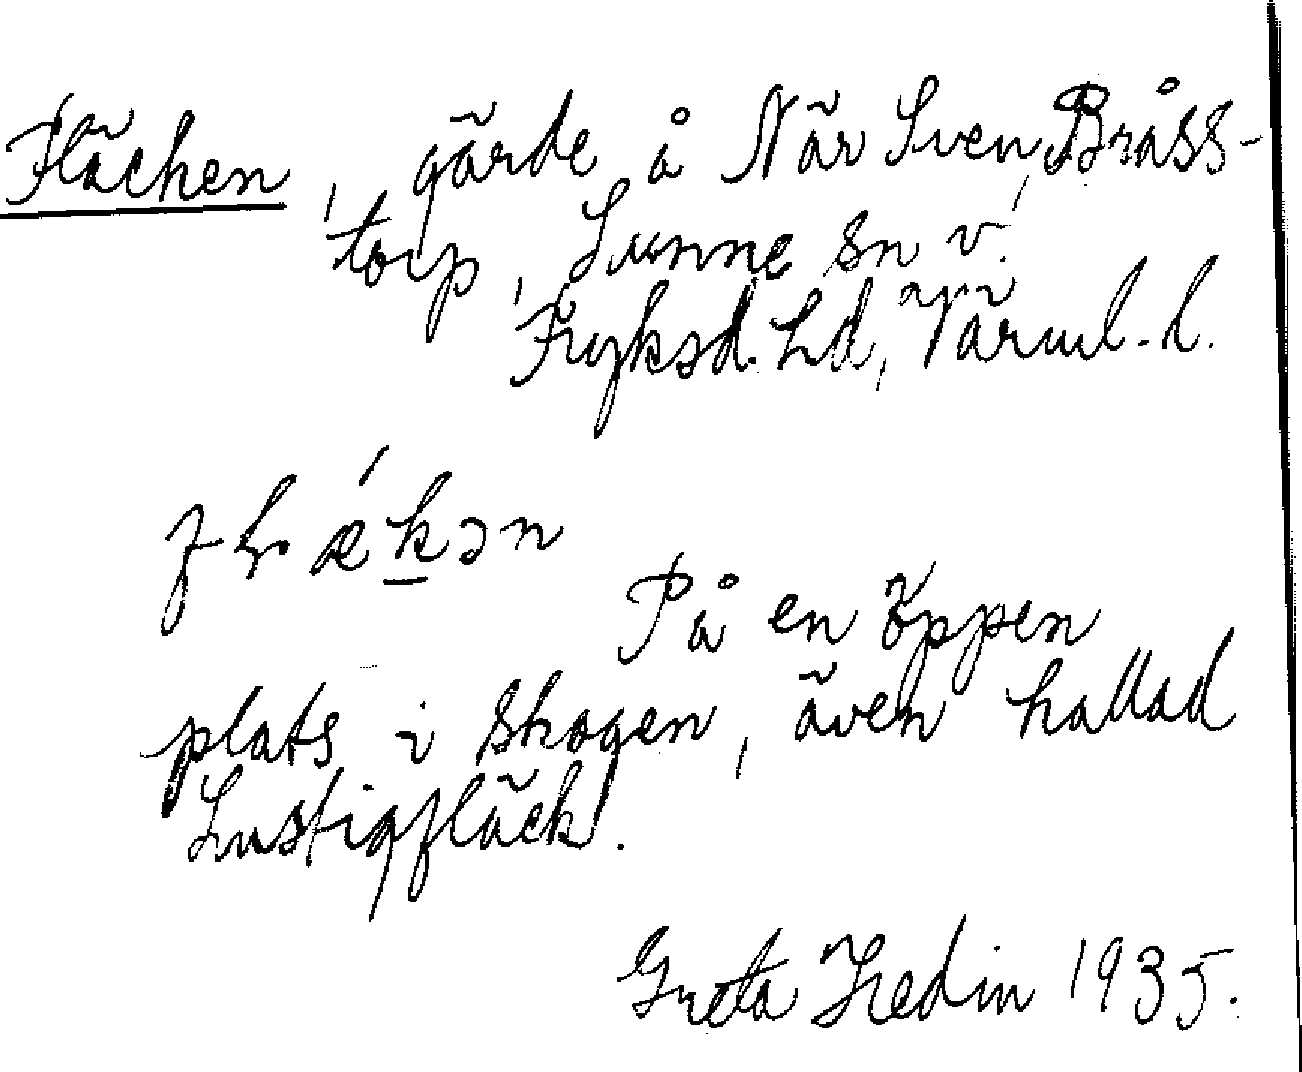 Fläcken, gärde å När Sven, Bråss-
torp, Sunne sn v.
Fryksd. hd, Värml. l.
fɽǽkən
På en öppen
plats i skogen, även kallad
Lustigfläck.
Greta Hedin 1935.